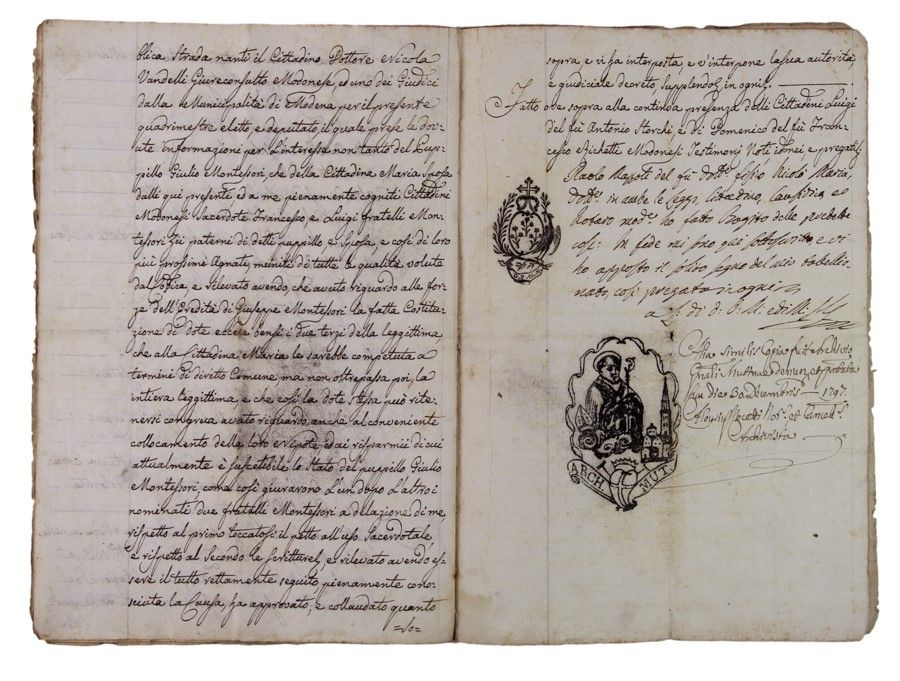 blica Strada nanti il Cittadino Dottore Nicola
Vandelli Giureconsulto Modonese, ed uno dei Giudici
dalla Municipalità di Modena per il presente
quadrimestre eletto, e deputato, il quale prese le dov-
ute Informazioni per l'interesse non tanto del Pup-
pillo Giulio Montessori, che della Cittadina Maria Sposa
dalli qui presenti, ed a me pienamente cogniti Cittadini
Modonesi Sacerdote Francesco, e Luigi fratelli Mon-
tessori Zii paterni di detti puppillo, e Sposa, e così di loro
più prossimi Agnati, muniti di tutte le qualità volute
dal, e rilevato avendo, che avuto riguardo alle for-
ze dell'Eredità di Giuseppe Montessori la fatta Costitu-
zione di dote eccede bensì i due terzi della leggittima,
che alla Cittadina Maria le sarebbe competuta a
termini di diritto Comune, ma non oltrepassa poi, la
intiera leggittima, e che così la dote stessa può rite-
nersi congrua, avuto riguardo, anche al conveniente
collocamento della loro Nipote, ed ai risparmii di cui
attualmente è suscettibile lo Stato del puppillo Giulio
Montessori, come così giurarono l'un dopo l'altro i
nominati due fratelli Montessori a delazione di me,
rispetto al primo toccatosi il petto all'uso Sacerdotale,
e rispetto al Secondo le Scritture, e rilevato avendo es-
sere il tutto rettamente seguito, pienamente cono-
sciuta la Causa, ha approvato, e collaudato quanto
=So=
sopra, e vi ha interposta, e v'interpone la sua autorità
e giudiciale decreto, Supplendo in ogni
Fatto ove sopra alla continua presenza delli Cittadini Luigi
del fù Antonio Storchi, e di Domenico del fù Fran-
cesco Richetti Modonesi Testimonj Noti idonei, e pregati
Paolo del fù Dott. Nicolò Maria,
Dott. in ambe le Leggi, Cittadino, Causidico, e
Notaro Mod. ho fatto Rogito delle predette
cose: In fede mi sono qui sottoscritto e vi
ho apposto il solito segno del mio tabellio-
nato, così pregato in ogni
Alia similis Copia fuit Archivio
die 30 Decembris 1797.
Not. et Cancell.
Archivista
ARCH. MUT.